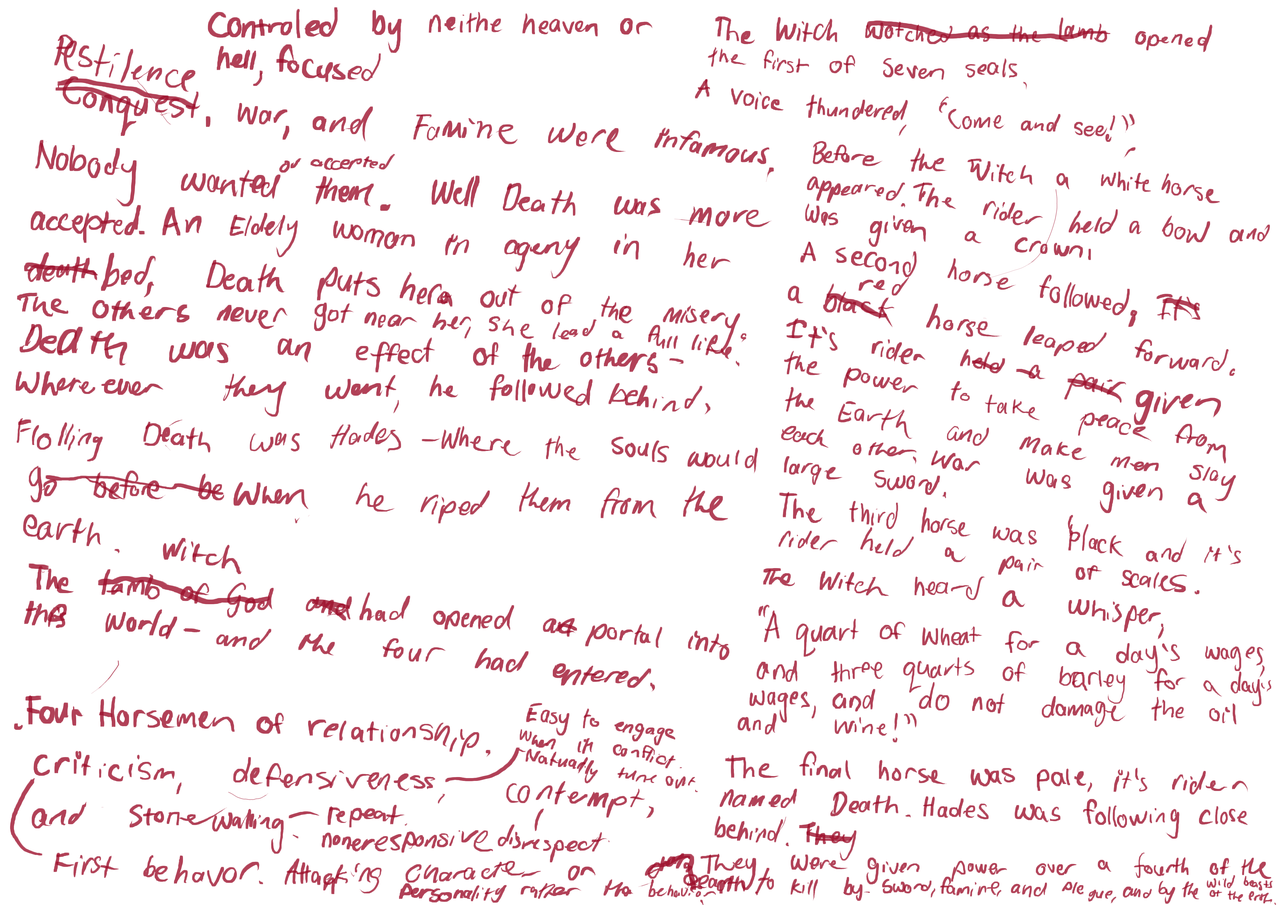 Controled by neithe heaven or
hell, focused
Pestilence
Conquest, war, and Famine were infamous.
or accepted
Nobody wanted them. Well Death was more
accepted. An Eldely woman in ageny in her
death bed, Death puts hera out of the misery.
The others never got near her, she lead a full life.
Death was an effect of the others -
Where ever they went, he followed behind,
Flolling Death was Hades - Where the souls would
go before be When he riped them from the
earth.
Witch
The lamb of God and had opened a portal into
this world - and the four had entered.
Four Horsemen of relationship.
Criticism, defensiveness,
Easy to engage
when in conflict.
Natually tune out.
contempt,
disrespect
and Stone walling - repeat.
noneresponsive
First behavor. Attacking Character or
personality rather the behavior
The Witch watched as the lamb opened
the first of seven seals.
A voice thundered, "Come and see!",
Before the Witch a white horse
appeared. The rider held a bow and
was given a crown.
A second horse followed, It's
red
a black horse leaped forward.
It's rider held a pair given
the power to take peace from
the Earth and make men slay
each other. War was given a
large sword.
The third horse was black and it's
rider held a pair of scales.
The Witch heard a whisper,
"A quart of wheat for a day's wages,
and three quarts of barley for a day's
wages, and do not damage the oil
and wine!"
The final horse was pale, it's rider
named Death. Hades was following close
behind. They
They were given power over a fourth of the
earth to kill by sword, famine, and plegue, and by the wild beasts
of the erth.